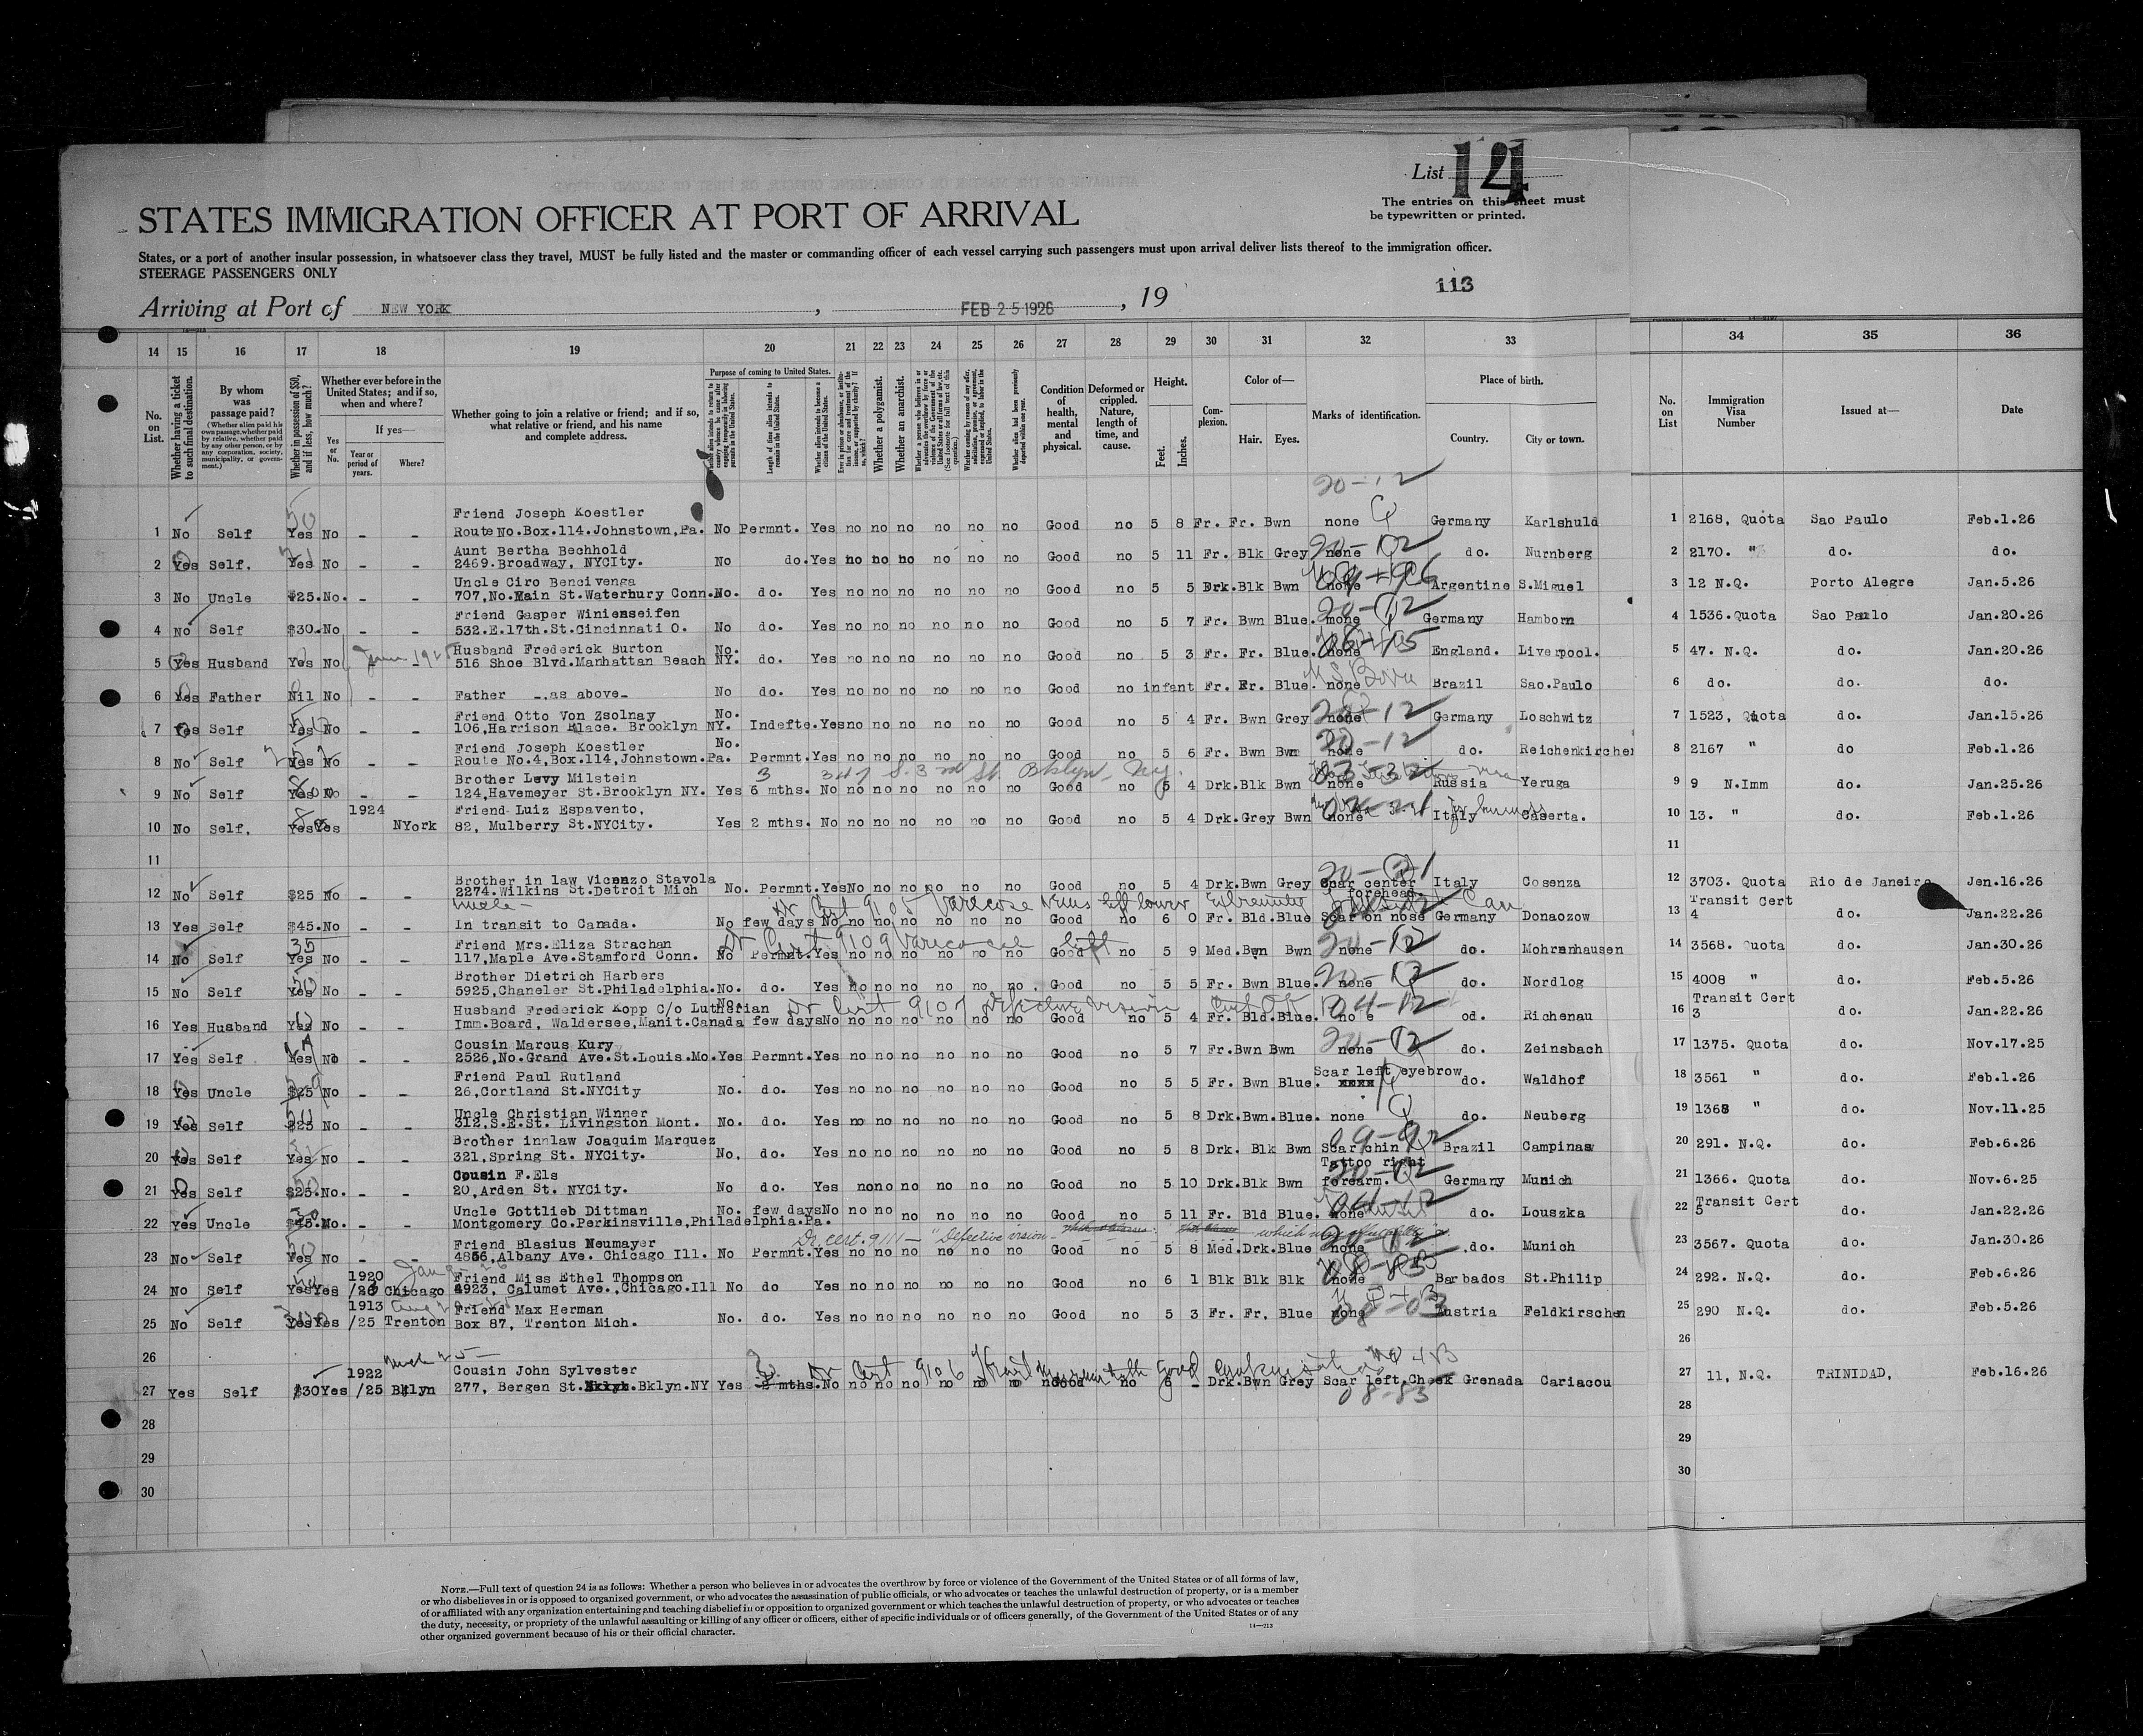 List 14
The entries on this sheet must
be typewritten or printed.
STATES IMMIGRATION OFFICER AT PORT OF ARRIVAL
States, or a port of another insular possession, in whatsoever class they travel, MUST be fully listed and the master or commanding officer of each vessel carrying such passengers must upon arrival deliver lists thereof to the immigration officer.
STEERAGE PASSENGERS ONLY
113
Arriving at Port of NEW YORK, FEB 25 1926, 19
14 15 16 17 18 19 20 21 22 23 24 25 26 27 28 29 30 31 32 33 34 35 36
No. on List.
Whether having a ticket to such final destination.
By whom was passage paid?
(Whether alien paid his own passage, whether paid by relative, whether paid by any other person, or by any corporation, society, municipality, or government.)
Whether in possession of $50, and if less, how much?
Whether ever before in the United States; and if so, when and where?
If yes—
Yes or No.
Year or period of years.
Where?
Whether going to join a relative or friend; and if so, what relative or friend, and his name and complete address.
Purpose of coming to United States.
Length of time alien intends to remain in the United States.
Whether alien intends to become a citizen of the United States.
Whether a polygamist.
Whether an anarchist.
Condition of health, mental and physical.
Deformed or crippled. Nature, length of time, and cause.
Height.
Feet.
Inches.
Complexion.
Color of—
Hair.
Eyes.
Marks of identification.
Place of birth.
Country.
City or town.
No. on List
Immigration Visa Number
Issued at—
Date
20-12
Friend Joseph Koestler
1 No Self Yes No - - Route No.Box.114.Johnstown,Pa. No Permnt. Yes no no no no no no Good no 5 8 Fr. Fr. Bwn none Germany Karlshuld 1 2168, Quota Sao Paulo Feb.1.26
Aunt Bertha Bechhold
2 Yes Self. Yes No - - 2469.Broadway, NYCIty. No do. Yes no no no no no no Good no 5 11 Fr. Blk Grey none do. Nurnberg 2 2170. " do. do.
Uncle Ciro Bencivenga
3 No Uncle $25. No. - - 707,No.Main St.Waterbury Conn. No. do. Yes no no no no no no Good no 5 5 Drk. Blk Bwn none Argentine S.Miguel 3 12 N.Q. Porto Alegre Jan.5.26
Friend Gasper Winienseifen
4 No Self $30. No - - 532.E.17th.St.Cincinnati O. No do. Yes no no no no no no Good no 5 7 Fr. Bwn Blue. none Germany Hamborn 4 1536.Quota Sao Paulo Jan.20.26
Husband Frederick Burton No.
5 Yes Husband Yes No - 516 Shoe Blvd.Manhattan Beach NY. do. Yes no no no no no no Good no 5 3 Fr. Fr. Blue. none England. Liverpool. 5 47. N.Q. do. Jan.20.26
6 Yes Father Nil No - - Father -.as above- No do. Yes no no no no no no Good no infant Fr. Fr. Blue. none Brazil Sao.Paulo 6 do. do. do.
Friend Otto Von Zsolnay No.
7 Yes Self Yes No - - 106,Harrison Place. Brooklyn NY. Indefte. Yes no no no no no no Good no 5 4 Fr. Bwn Grey none Germany Loschwitz 7 1523, Quota do. Jan.15.26
Friend Joseph Koestler No.
8 No Self Yes No - - Route No.4,Box.114,Johnstown.Pa. Permnt. Yes no no no no no no Good no 5 6 Fr. Bwn Bwn none do. Reichenkircher 8 2167 " do Feb.1.26
Brother Levy Milstein 3 347 S. 3rd St. Bklyn, Ny.
9 No Self Yes No - - 124,Havemeyer St.Brooklyn NY. Yes 6 mths. No no no no no no no Good no 5 4 Drk. Blk Bwn none Russia Yeruga 9 9 N.Imm do. Jan.25.26
1924 Friend Luiz Espavento,
10 No Self. Yes Yes NYork 82, Mulberry St.NYCity. Yes 2 mths. No no no no no no no Good no 5 4 Drk. Grey Bwn none Italy Caserta. 10 13. " do. Feb.1.26
11 11
Brother in law Vicenzo Stavola
12 No Self $25 No - - 2274.Wilkins St.Detroit Mich No. Permnt. Yes No no no no no no Good no 5 4 Drk. Bwn Grey Scar center forehead. Italy Cosenza 12 3703. Quota Rio de Janeiro Jen.16.26
Dr Cert 9105 Varicose Veins left lower Extremities
13 Yes Self $45. No - - In transit to Canada. No few days No no no no no no no Good no 6 0 Fr. Bld. Blue Scar on nose Germany Donaozow 13 Transit Cert 4 do. Jan.22.26
35 Friend Mrs.Eliza Strachan Dr Cert 9109 Varicocele left
14 No Self Yes No - - 117,Maple Ave.Stamford Conn. No Permnt. Yes no no no no no no Good no 5 9 Med. Bwn Bwn none do. Mohrenhausen 14 3568. Quota do. Jan.30.26
Brother Dietrich Harbers
15 No Self Yes No - - 5925,Chaneler St.Philadelphia. No. do. Yes no no no no no no Good no 5 5 Fr. Bwn Blue. none do. Nordlog 15 4008 " do. Feb.5.26
Husband Frederick Kopp C/o Lutherian No. Dr Cert 9107 Defective Vision
16 Yes Husband Yes No - - Imm.Board, Waldersee,Manit.Canada few days No no no no no no no Good no 5 4 Fr. Bld. Blue. no e od. Richenau 16 Transit Cert 3 do. Jan.22.26
Cousin Marcus Kury
17 Yes Self Yes No - - 2526,No.Grand Ave.St.Louis.Mo. Yes Permnt. Yes no no no no no no Good no 5 7 Fr. Bwn Bwn none do. Zeinsbach 17 1375. Quota do. Nov.17.25
Friend Paul Rutland Scar left eyebrow
18 Yes Uncle $25 No - - 26,Cortland St.NYCity No. do. Yes no no no no no no Good no 5 5 Fr. Bwn Blue. xxxx do. Waldhof 18 3561 " do. Feb.1.26
Uncle Christian Winner
19 Yes Self $25 No - - 312,S.E.St. Livingston Mont. No. do. Yes no no no no no no Good no 5 8 Drk. Bwn. Blue. none do. Neuberg 19 1368 " do. Nov.11.25
Brother innlaw Joaquim Marquez
20 Yes Self Yes No - - 321,Spring St. NYCity. No, do. Yes no no no no no no Good no 5 8 Drk. Blk Bwn Scar chin Brazil Campinas 20 291. N.Q. do. Feb.6.26
Cousin F.Els Tattoo right
21 Yes Self $25. No. - - 20,Arden St. NYCity. No do. Yes no no no no no no Good no 5 10 Drk. Blk Bwn forearm. Germany Munich 21 1366. Quota do. Nov.6.25
Uncle Gottlieb Dittman
22 Yes Uncle $45. No. - - Montgomery Co.Perkinsville,Philadelphia.Pa. No. few days No no no no no no no Good no 5 11 Fr. Bld Blue. none do. Louszka 22 Transit Cert 5 do. Jan.22.26
Friend Blasius Neumayer Dr. cert. 9111 - "Defective vision-
23 No Self Yes No - 4856,Albany Ave. Chicago Ill. No Permnt. Yes no no no no no no Good no 5 8 Med. Drk. Blue none do. Munich 23 3567. Quota do. Jan.30.26
1920 Friend Miss Ethel Thompson
24 No Self Yes Yes Chicago 4923, Calumet Ave.,Chicago.Ill No do Yes no no no no no no Good no 6 1 Blk Blk Blk none Barbados St.Philip 24 292. N.Q. do. Feb.6.26
1913 Friend Max Herman
25 No Self Yes Yes /25 Trenton Box 87, Trenton Mich. No. do. Yes no no no no no no Good no 5 3 Fr. Fr. Blue none Austria Feldkirschen 25 290 N.Q. do. Feb.5.26
26 26
1922 Cousin John Sylvester 3 Dr Cert 9106
27 Yes Self $30 Yes /25 Bklyn 277, Bergen St.Bklyn.NY Yes 2 mths. No no no no no no no Good no 6 - Drk. Bwn Grey Scar left.Cheek Grenada Cariacou 27 11, N.Q. TRINIDAD, Feb.16.26
08-83
28 28
29 29
30 30
NOTE.—Full text of question 24 is as follows: Whether a person who believes in or advocates the overthrow by force or violence of the Government of the United States or of all forms of law,
or who disbelieves in or is opposed to organized government, or who advocates the assassination of public officials, or who advocates or teaches the unlawful destruction of property, or is a member
of or affiliated with any organization entertaining and teaching disbelief in or opposition to organized government or which teaches the unlawful destruction of property, or who advocates or teaches
the duty, necessity, or propriety of the unlawful assaulting or killing of any officer or officers, either of specific individuals or of officers generally, of the Government of the United States or of any
other organized government because of his or their official character.
14—213